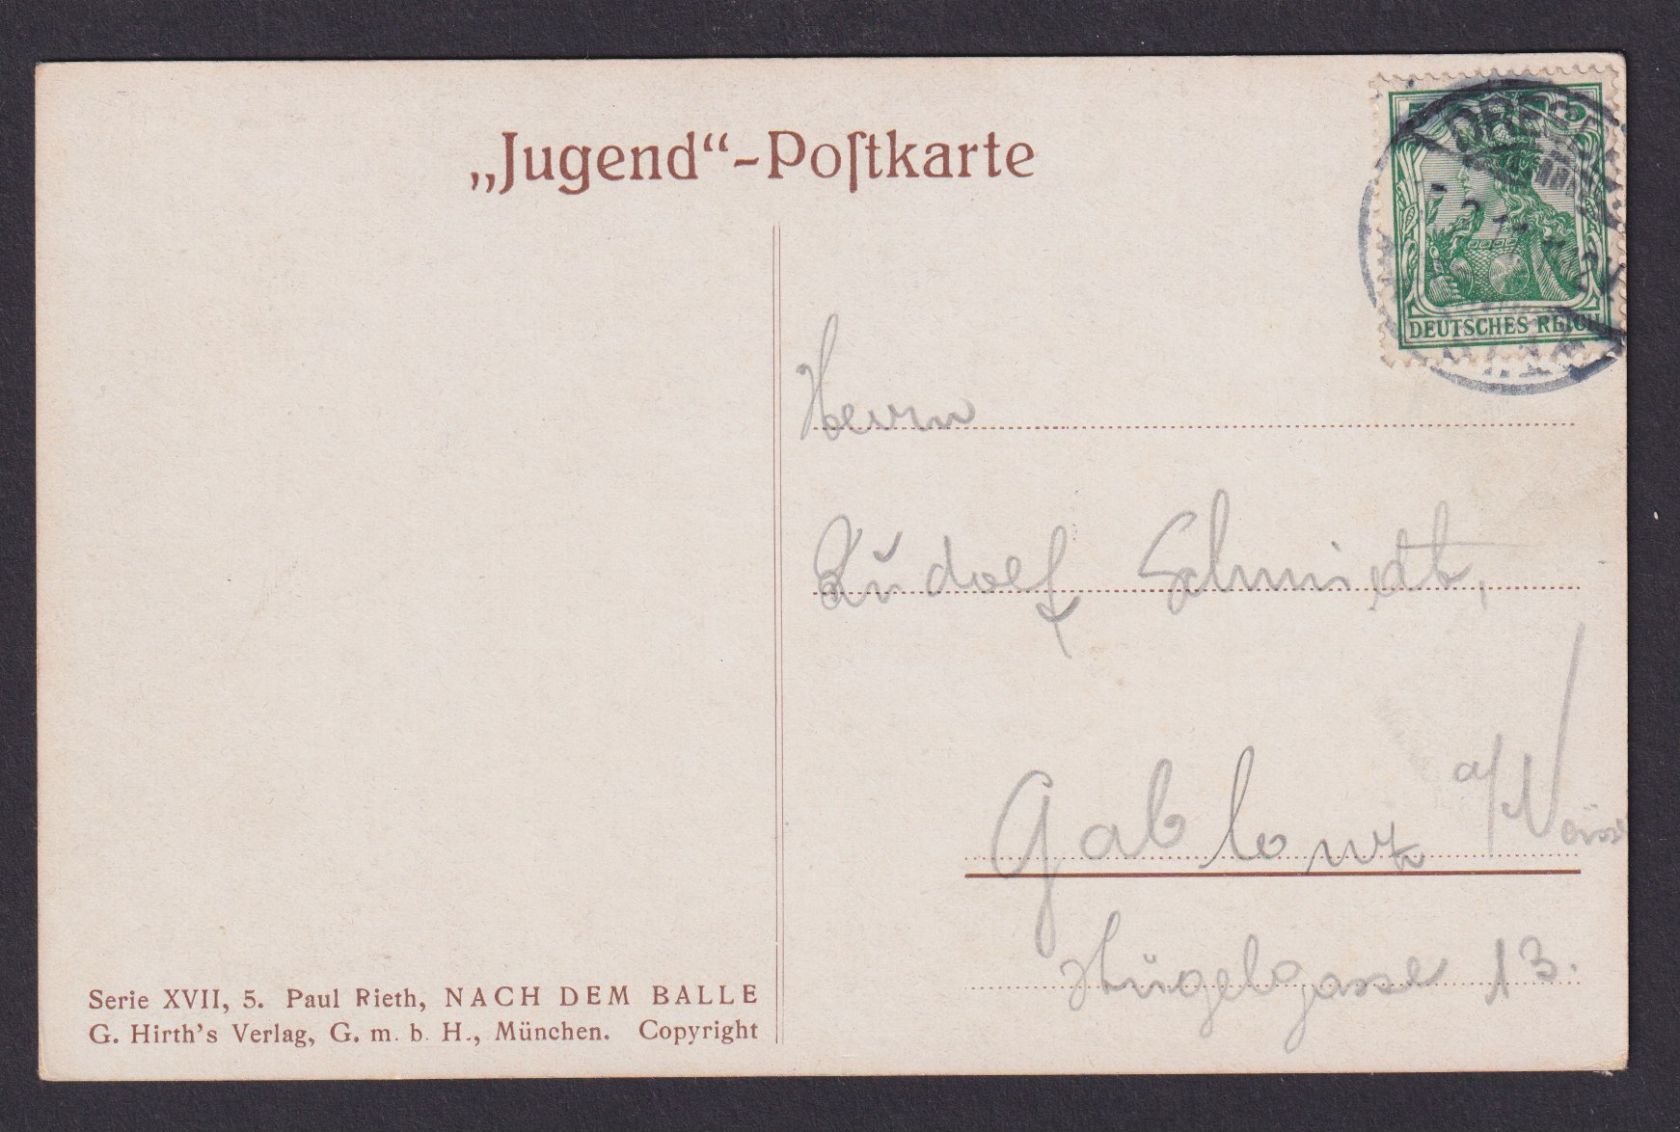 „Jugend“-Poſtkarte
DRESDEN
DEUTSCHES REICH
Herrn
Rudolf Schmidt,
Gablonz a/Neisse
Hügelgasse 13.
Serie XVII, 5. Paul Rieth, NACH DEM BALLE
G. Hirth's Verlag, G. m. b. H., München. Copyright